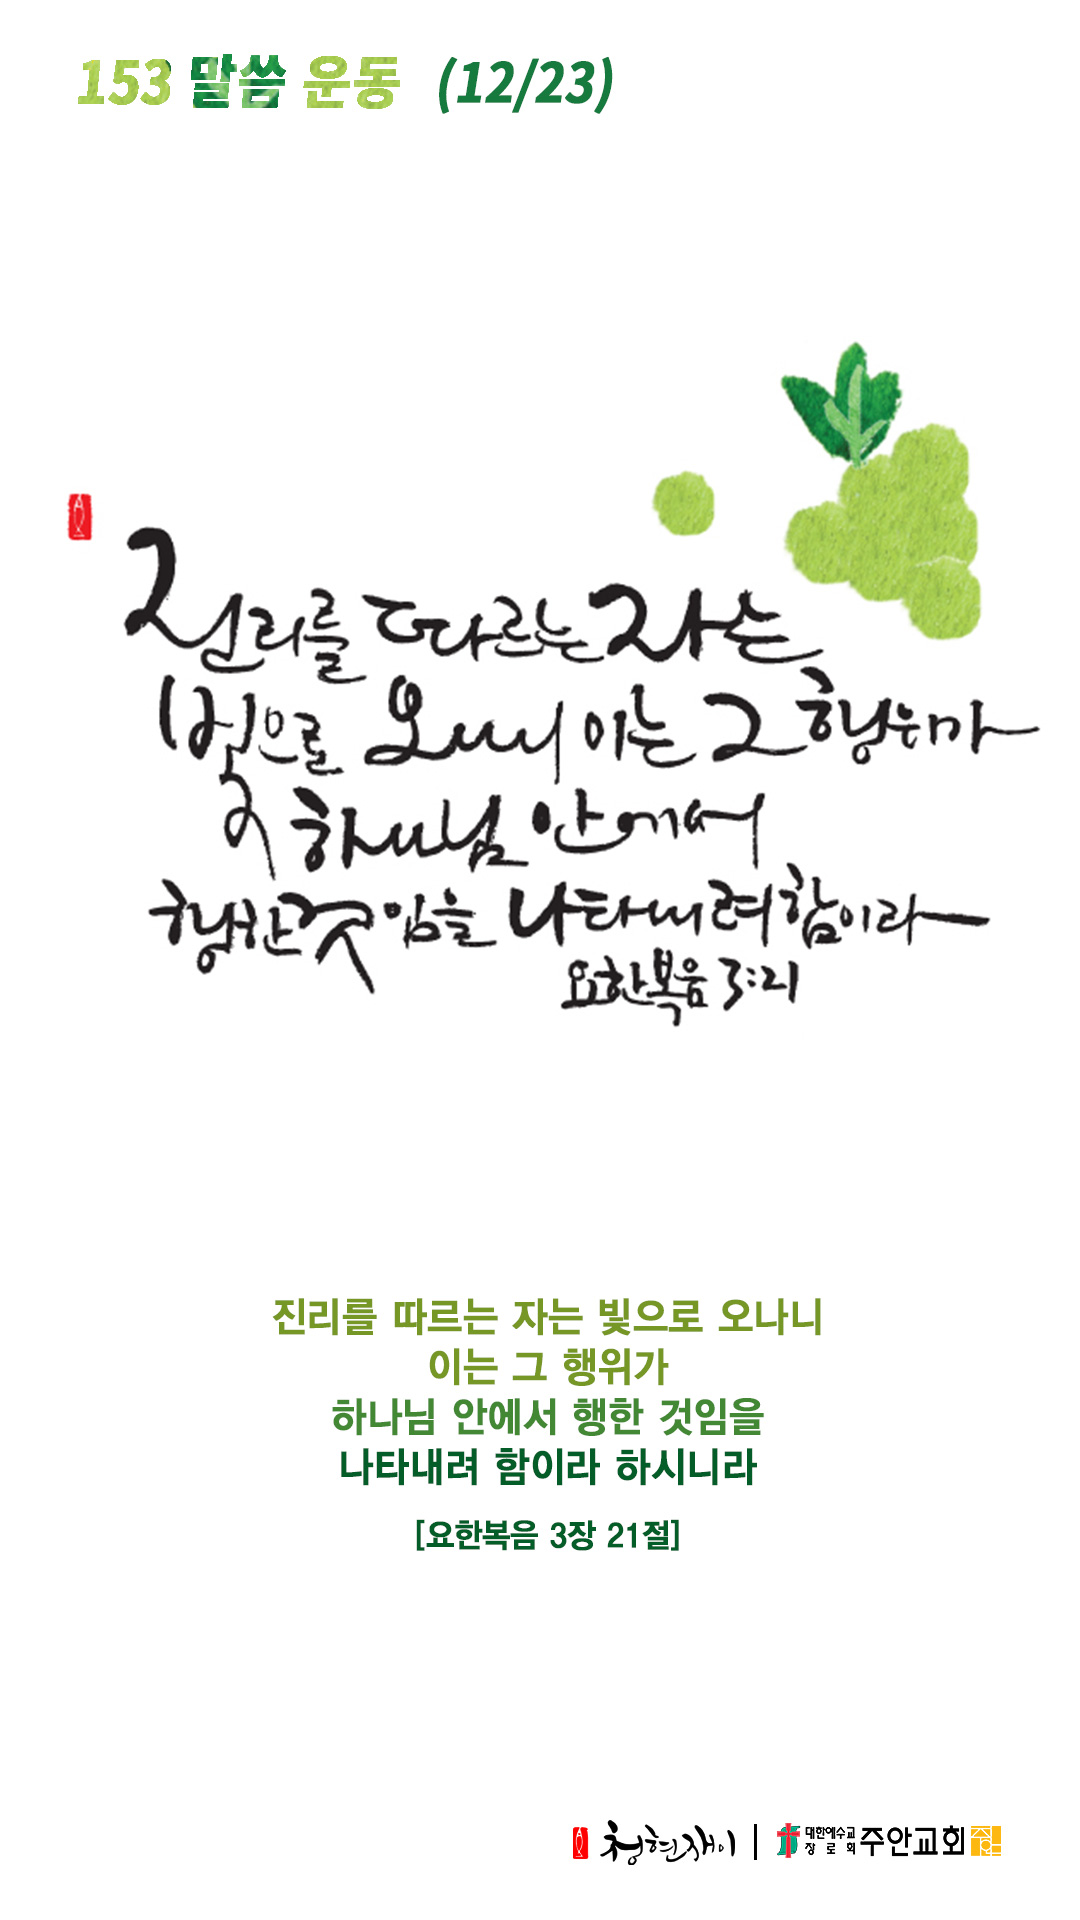 153 말씀 운동 (12/23)
진리를 따르는 자는
빛으로 오나니 이는 그 행위가
하나님 안에서
행한 것임을 나타내려 함이라
요한복음 3:21
진리를 따르는 자는 빛으로 오나니
이는 그 행위가
하나님 안에서 행한 것임을
나타내려 함이라 하시니라
[요한복음 3장 21절]
청현재이 | 대한예수교장로회 주안교회 주안